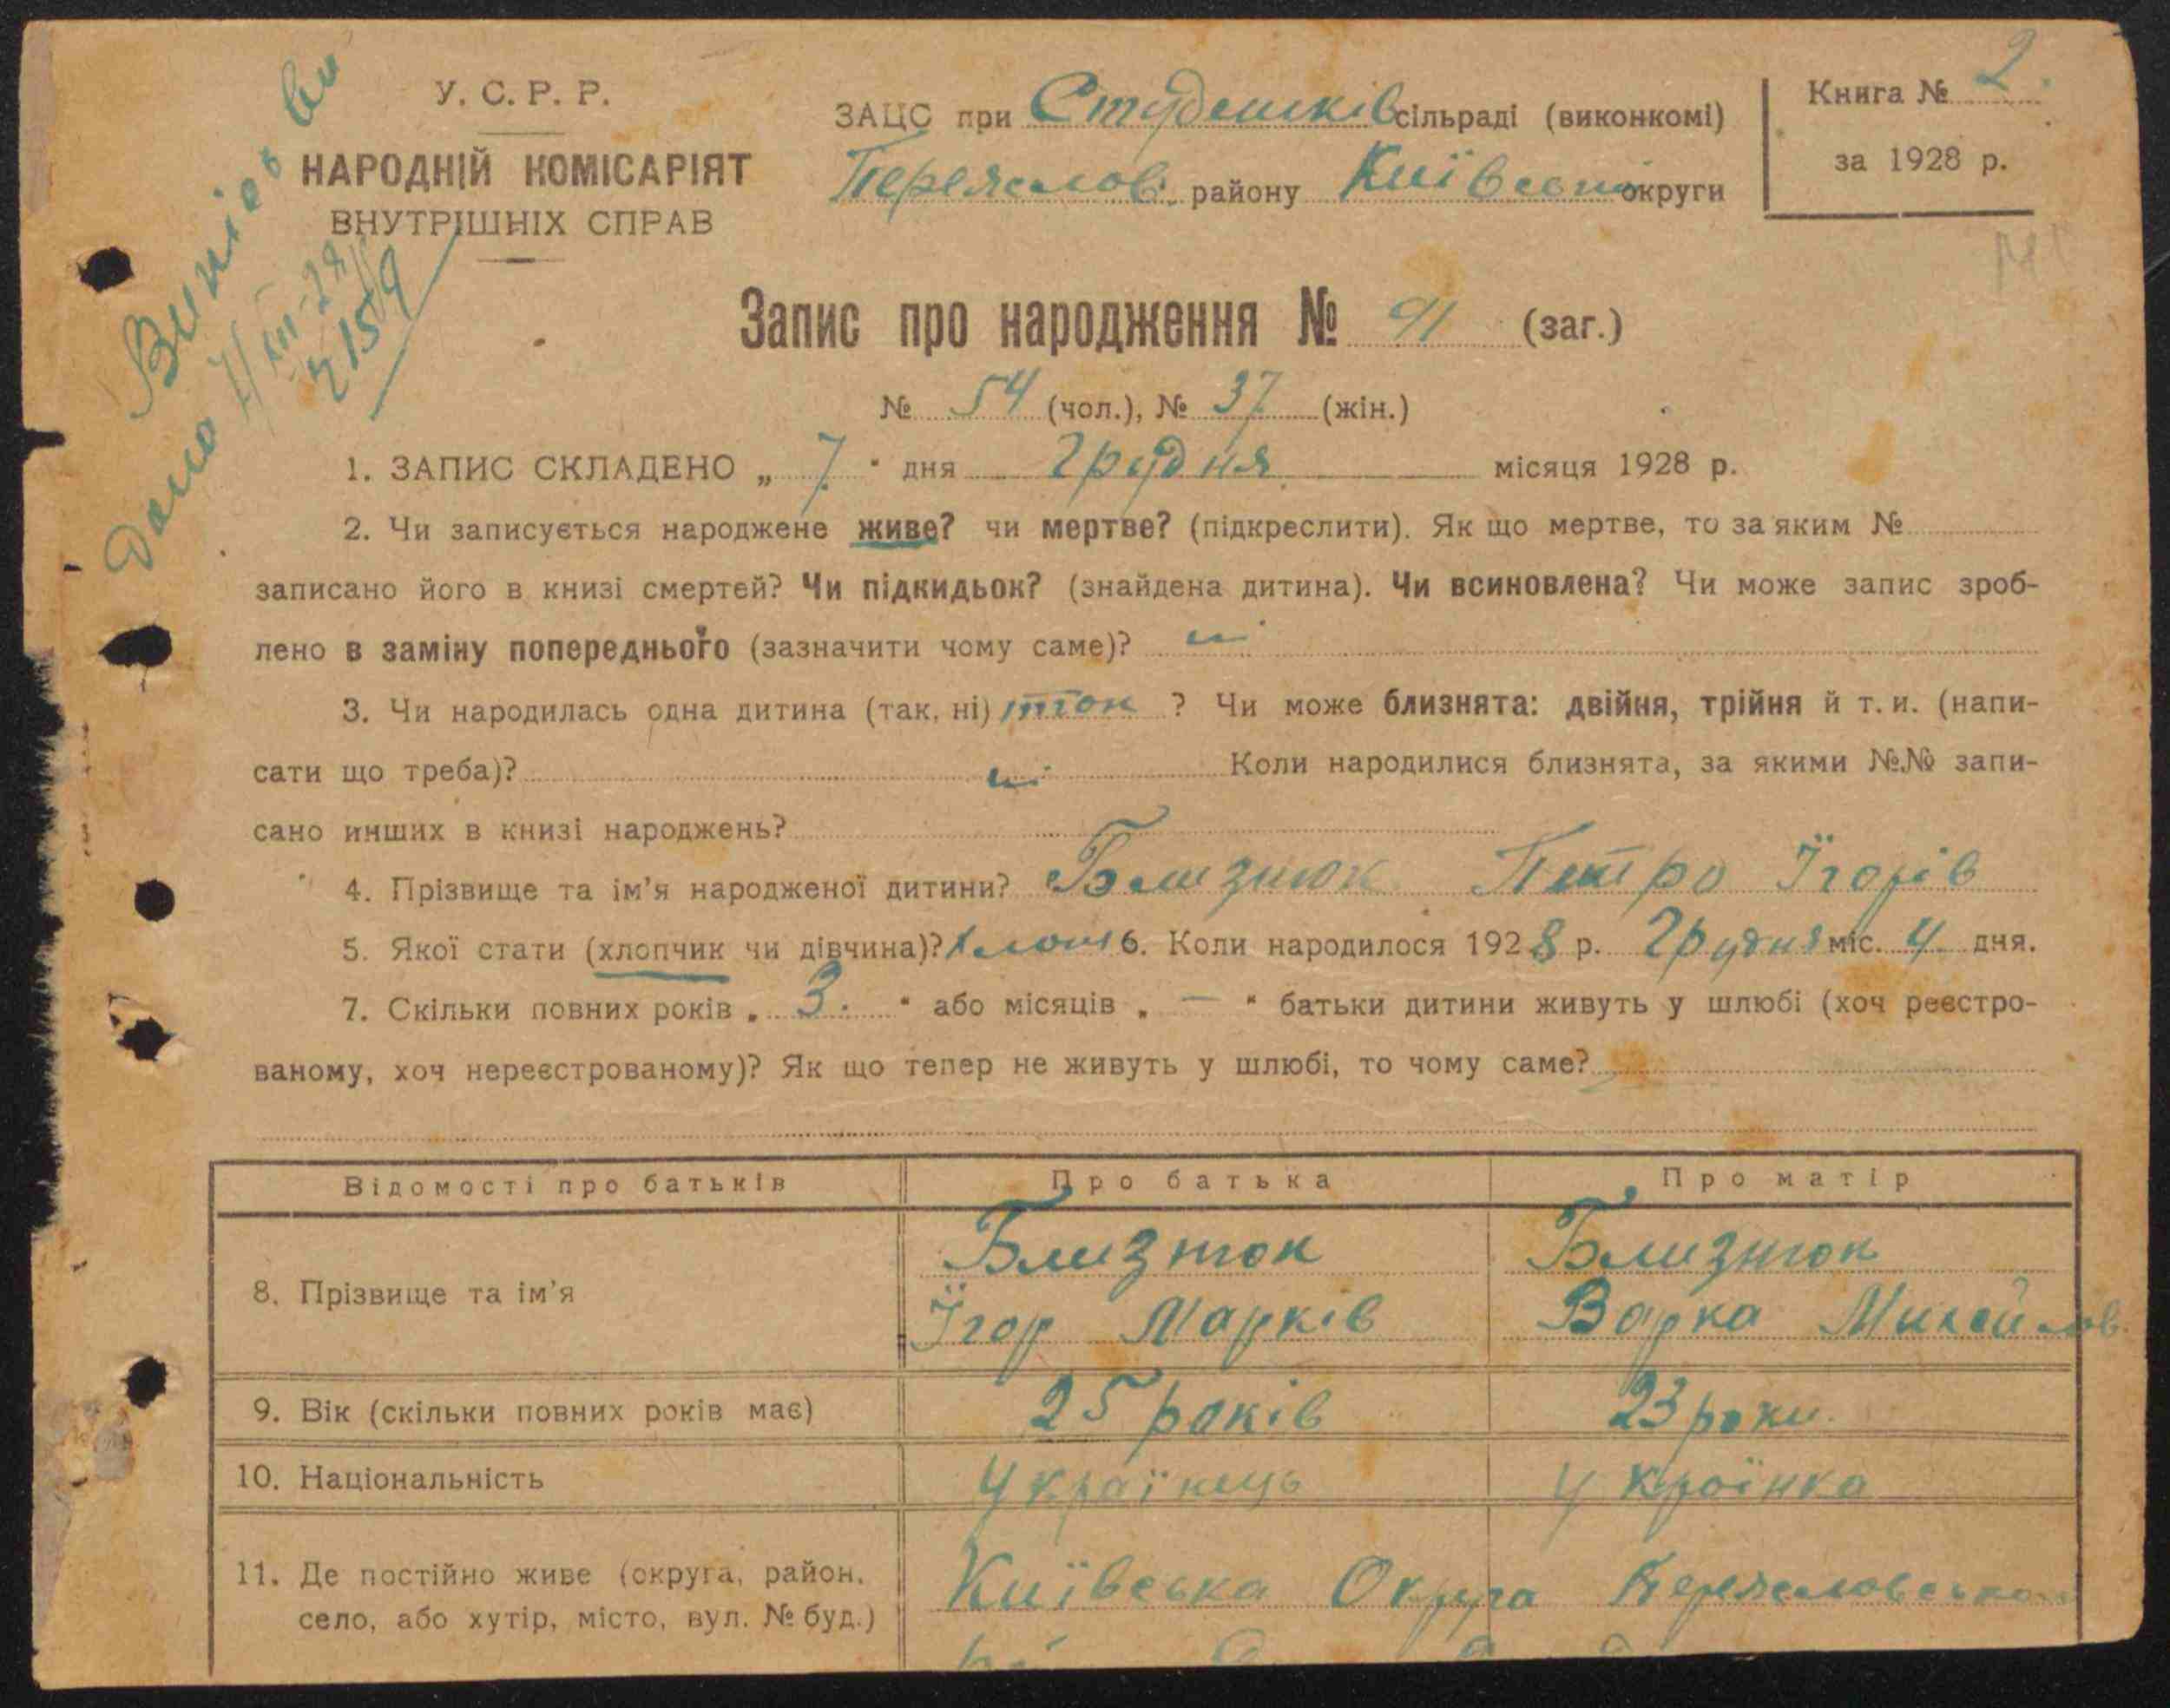 У. С. Р. Р.
НАРОДНІЙ КОМІСАРІЯТ
ВНУТРІШНІХ СПРАВ
ЗАЦС при Студеників сільраді (виконкомі)
Переяслов. району Київської округи
Книга № 2.
за 1928 р.
Дано Випісь
7/XII-28
Запис про народження № 91 (заг.)
№ 54 (чол.), № 37 (жін.)
1. ЗАПИС СКЛАДЕНО „ 7 " дня Грудня місяця 1928 р.
2. Чи записується народжене живе? чи мертве? (підкреслити). Як що мертве, то за яким №
записано його в книзі смертей? Чи підкидьок? (знайдена дитина). Чи всиновлена? Чи може запис зроб-
лено в заміну попереднього (зазначити чому саме)? ні
3. Чи народилась одна дитина (так, ні) так ? Чи може близнята: двійня, трійня й т. и. (напи-
сати що треба)? ні Коли народилися близнята, за якими №№ запи-
сано инших в книзі народжень?
4. Прізвище та ім'я народженої дитини? Близнюк Петро Їгорів
5. Якої стати (хлопчик чи дівчина)? хлоп 6. Коли народилося 1928 р. Грудня міс. 4 дня.
7. Скільки повних років „ 3. " або місяців „ — " батьки дитини живуть у шлюбі (хоч реєстро-
ваному, хоч нереєстрованому)? Як що тепер не живуть у шлюбі, то чому саме?
Відомості про батьків Про батька Про матір
8. Прізвище та ім'я Близнюк Близнюк
Їгор Марків Варка Михайлов
9. Вік (скільки повних років має) 25 років 23 роки.
10. Національність Українець Українка
11. Де постійно живе (округа, район, Київська Округа Переясловського
село, або хутір, місто, вул. № буд.)